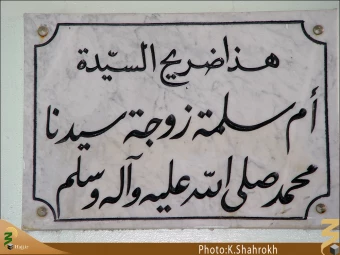 هذا ضريح السيّدة
أم سلمة زوجة سيدنا
محمد صلى الله عليه وآله وسلم
Photo:K.Shahrokh